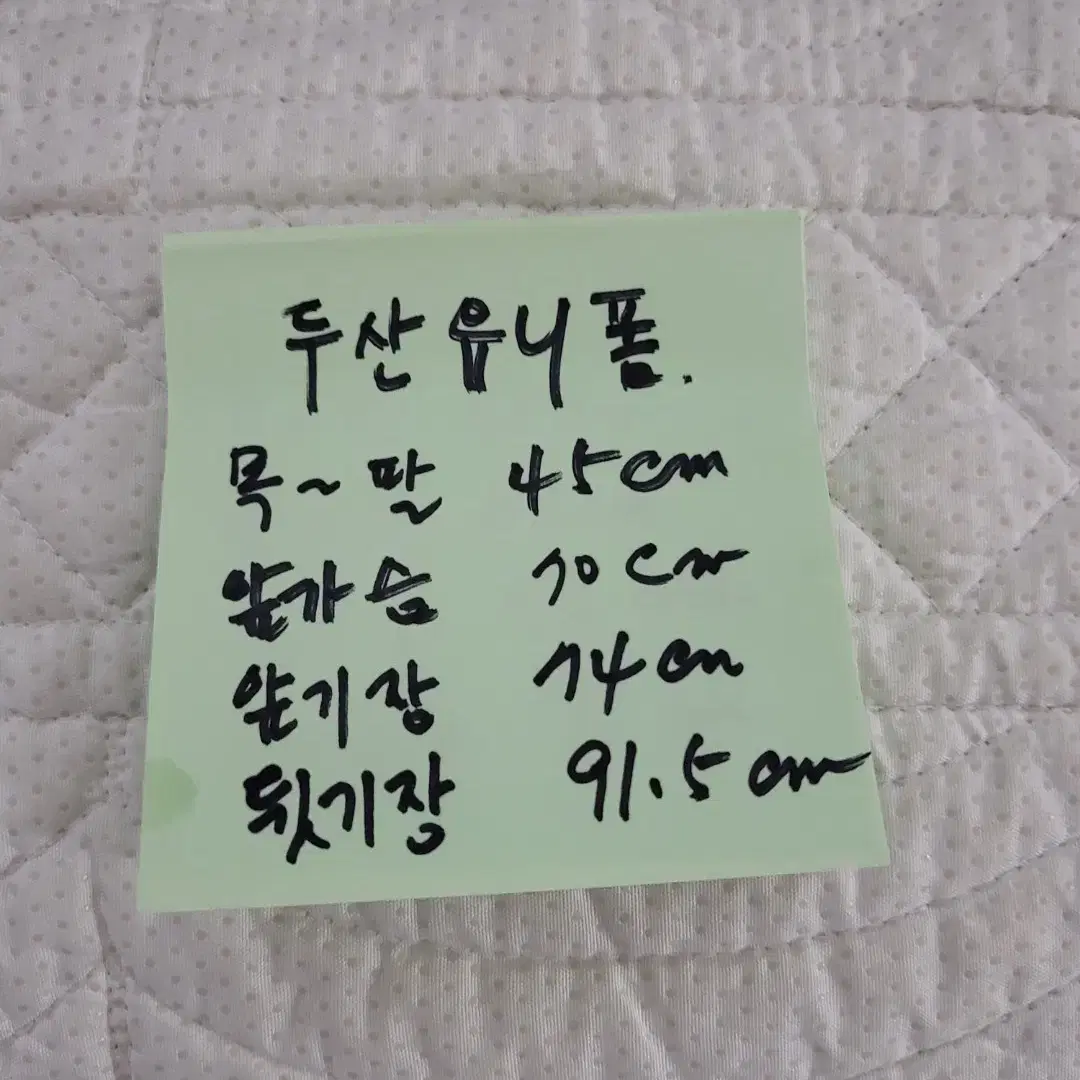 두산유니폼.
목~팔 45cm
앞가슴 70cm
앞기장 74cm
뒷기장 91.5cm